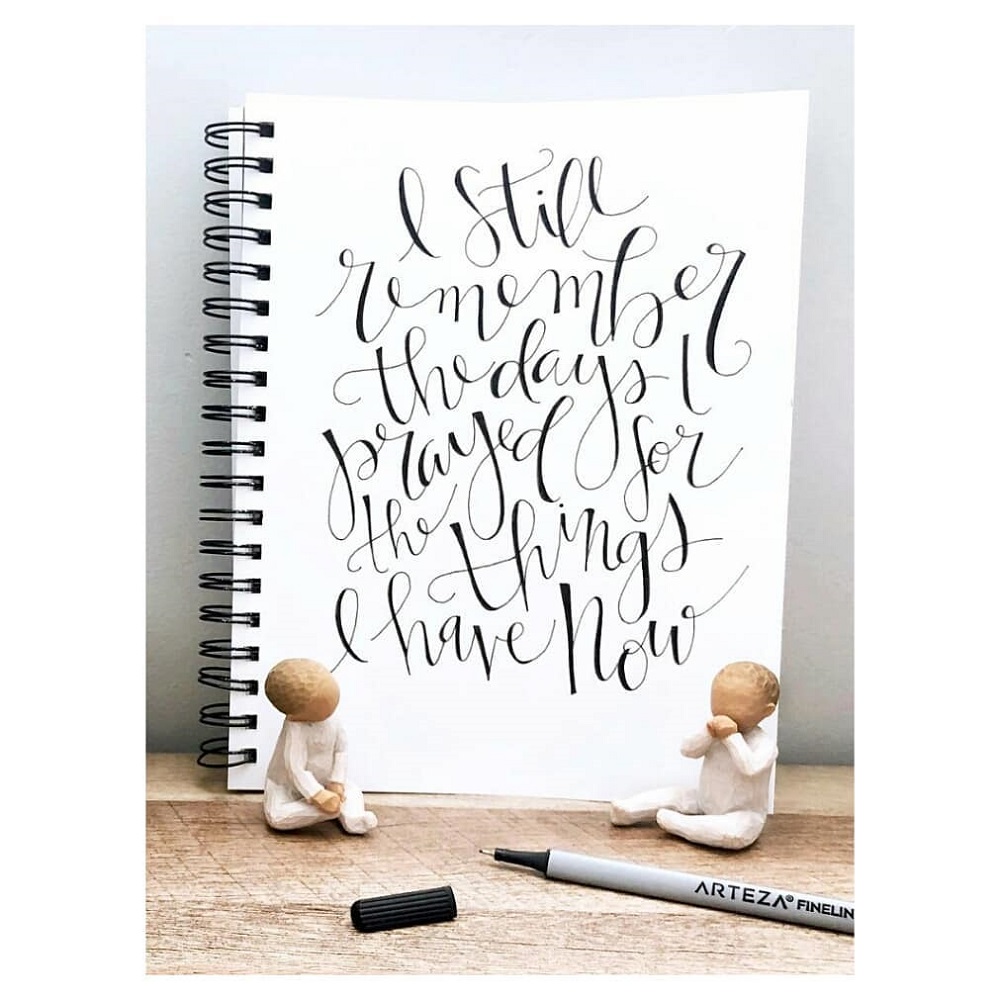 I Still
remember
the days I
prayed for
the things
I have Now
ARTEZA® FINELIN